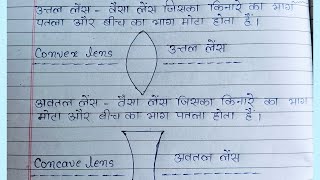 उत्तल लेंस - वैसा लेंस जिसका किनारे का भाग
पतला और बीच का भाग मोटा होता है।
Convex lens उत्तल लेंस
अवतल लेंस - वैसा लेंस जिसका किनारे का भाग
मोटा और बीच का भाग पतला होता है।
Concave lens अवतल लेंस